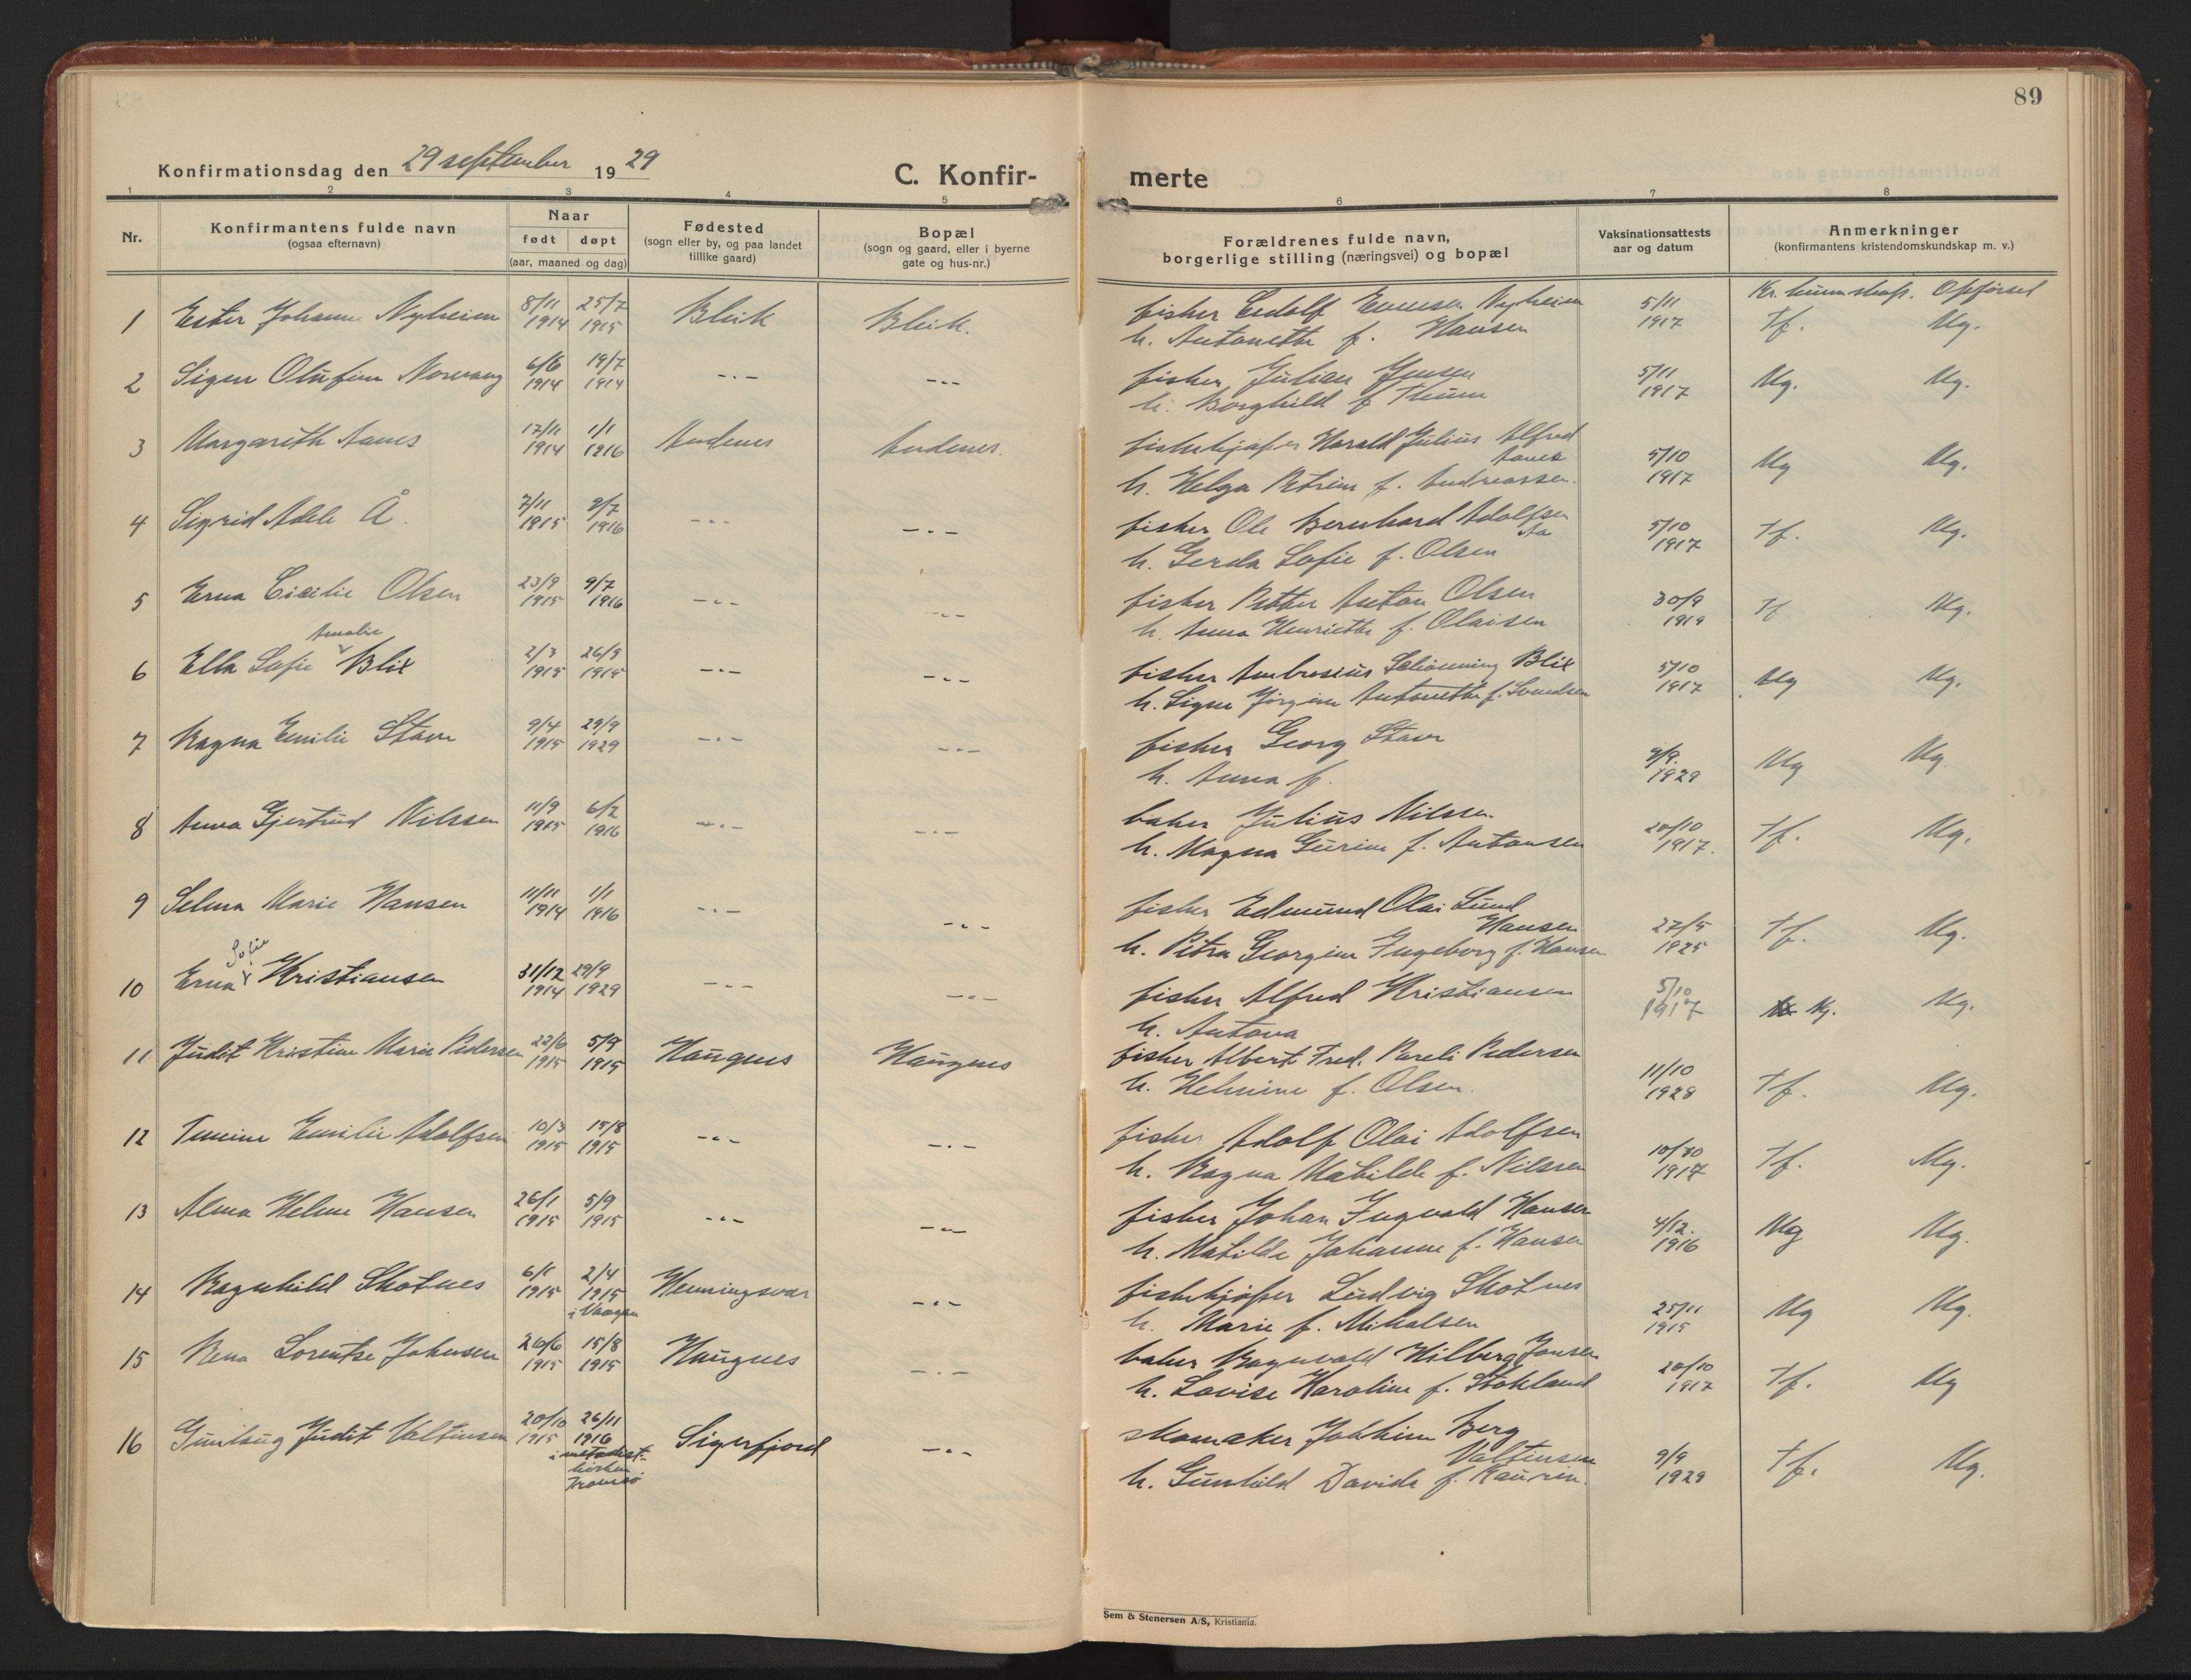 89
Konfirmationsdag den 29 september 1929
C. Konfir- merte
1 2 3 4 5 6 7 8
Nr. Konfirmantens fulde navn (ogsaa efternavn) Naar født døpt (aar, maaned og dag) Fødested (sogn eller by, og paa landet tillike gaard) Bopæl (sogn og gaard, eller i byerne gate og hus-nr.) Forældrenes fulde navn, borgerlige stilling (næringsvei) og bopæl Vaksinationsattests aar og datum Anmerkninger (konfirmantens kristendomskundskap m. v.)
Kr. kunnskap. Opførsel
1 Ester Johanne Nyheim 8/11 1914 25/7 1915 Bleik Bleik. fisker Nyheim 5/11 1917 Tf. Mg.
h. Antonette f. Hansen
2 Signe Olufine Norvang 6/6 1914 19/7 1914 -.- -.- fisker Julian Jensen 5/11 1917 Mg. Mg.
h. Borghild f.
3 Margareth Aanes 17/11 1914 1/1 1916 Andenes Andenes. fiskekjøper Harald Julius Alfred Aanes 5/10 1917 Mg Mg.
h. Helga Petrine f. Andreassen.
4 Sigrid Adele Å. 7/11 1915 9/7 1916 -.- -.- fisker Ole Bernhard Adolfsen Aa 5/10 1917 Tf. Mg.
h. Gerda Sofie f. Olsen
5 Erna Cicilie Olsen 23/9 1915 9/7 1916 -.- -.- fisker Petter Anton Olsen 30/9 1919 Tf Mg.
h. Anna Henriette f. Olaisen
6 Ella Sofie Amalie Blix 2/3 1915 26/9 1915 -.- -.- fisker Ambrosius Schönning Blix 5/10 1917 Mg Mg.
h. Signe Jørgine Antonette f. Svendsen
7 Ragna Emilie Stave 9/4 1915 29/9 1929 -.- -.- fisker Georg Stave 9/9. 1929 Mg Mg.
h. Anna f.
8 Anna Gjertrud Nilssen 11/9 1915 6/2 1916 -.- -.- baker Julius Nilssen. 20/10 1917. Tf. Mg.
h. Magna Gurine f. Antonsen
9 Selma Marie Hansen 11/11 1914 1/1 1916 -.- -.- fisker Edmund Olai Lund Hansen 27/5 1925 Tf. Mg.
h. Petra Georgine Ingeborg f. Hansen
10 Erna Sofie Kristiansen 31/12 1914 29/9 1929 -.- -.- fisker Alfred Kristiansen 5/10 1917 Mg. Mg.
h. Antona
11 Judit Kristine Marie Pedersen 22/6 1915 5/9 1915 Haugnes Haugnes fisker Albert Fred. Pareli Pedersen 11/10 1928 Tf. Mg.
h. Helmine f. Olsen.
12 Emilie Adolfsen 10/3 1915 15/8 1915 -.- -.- fisker Adolf Olai Adolfsen 10/10 1917 Tf. Mg.
h. Ragna Matilde f. Nilssen
13 Alma Helene Hansen 26/1 1915 5/9 1915 -.- -.- fisker Johan Ingvald Hansen 4/12. 1916 Mg Mg.
h. Matilde Johanne f. Hansen
14 Ragnhild Skotnes 6/1 1915 2/4 1915 i Vaagan Henningsvær -.- fiskekjøper Ludvig Skotnes 25/11 1915 Mg Mg.
h. Marie f. Mikalsen
15 Rena Lorentse Johnsen 26/6 1915 15/8 1915 Haugnes -.- baker Ragnvald Hilberg Jonsen 20/10 1917 Tf. Mg
h. Lovise Karoline f. Stokland
16 Gunlaug Judit Valtinsen 20/10 1915 26/11 1916 i metodist-kirken Tromsø Sigerfjord -.- skomaker Jokkim Berg Valtinsen 9/9 1929 Tf. Mg.
h. Gunhild Davida f. Kaurin.
Sem & Stenersen A/S, Kristiania.